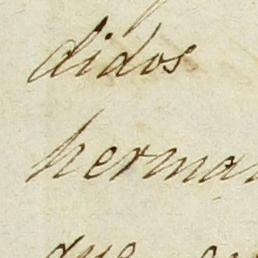 didos
herma
que